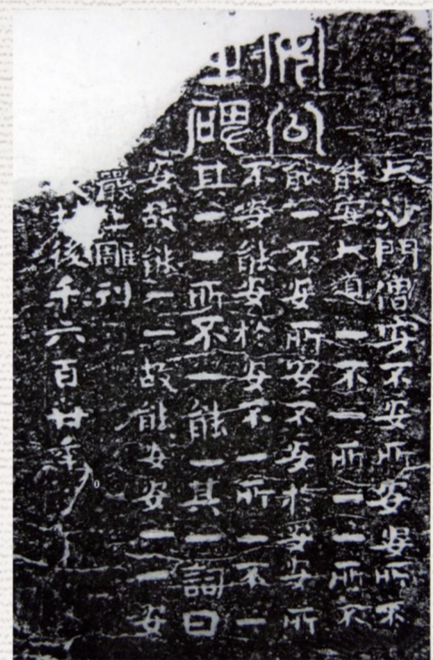 公
之碑
大沙門僧安不安所安安所不
能安大道一不一所一一所不
能一不安所安不安於安安所
不安能安於安不一所一不一
且一一所不一能一其一詞曰
安故能一一故能安安一一安
嚴上雕刊
後千六百廿年